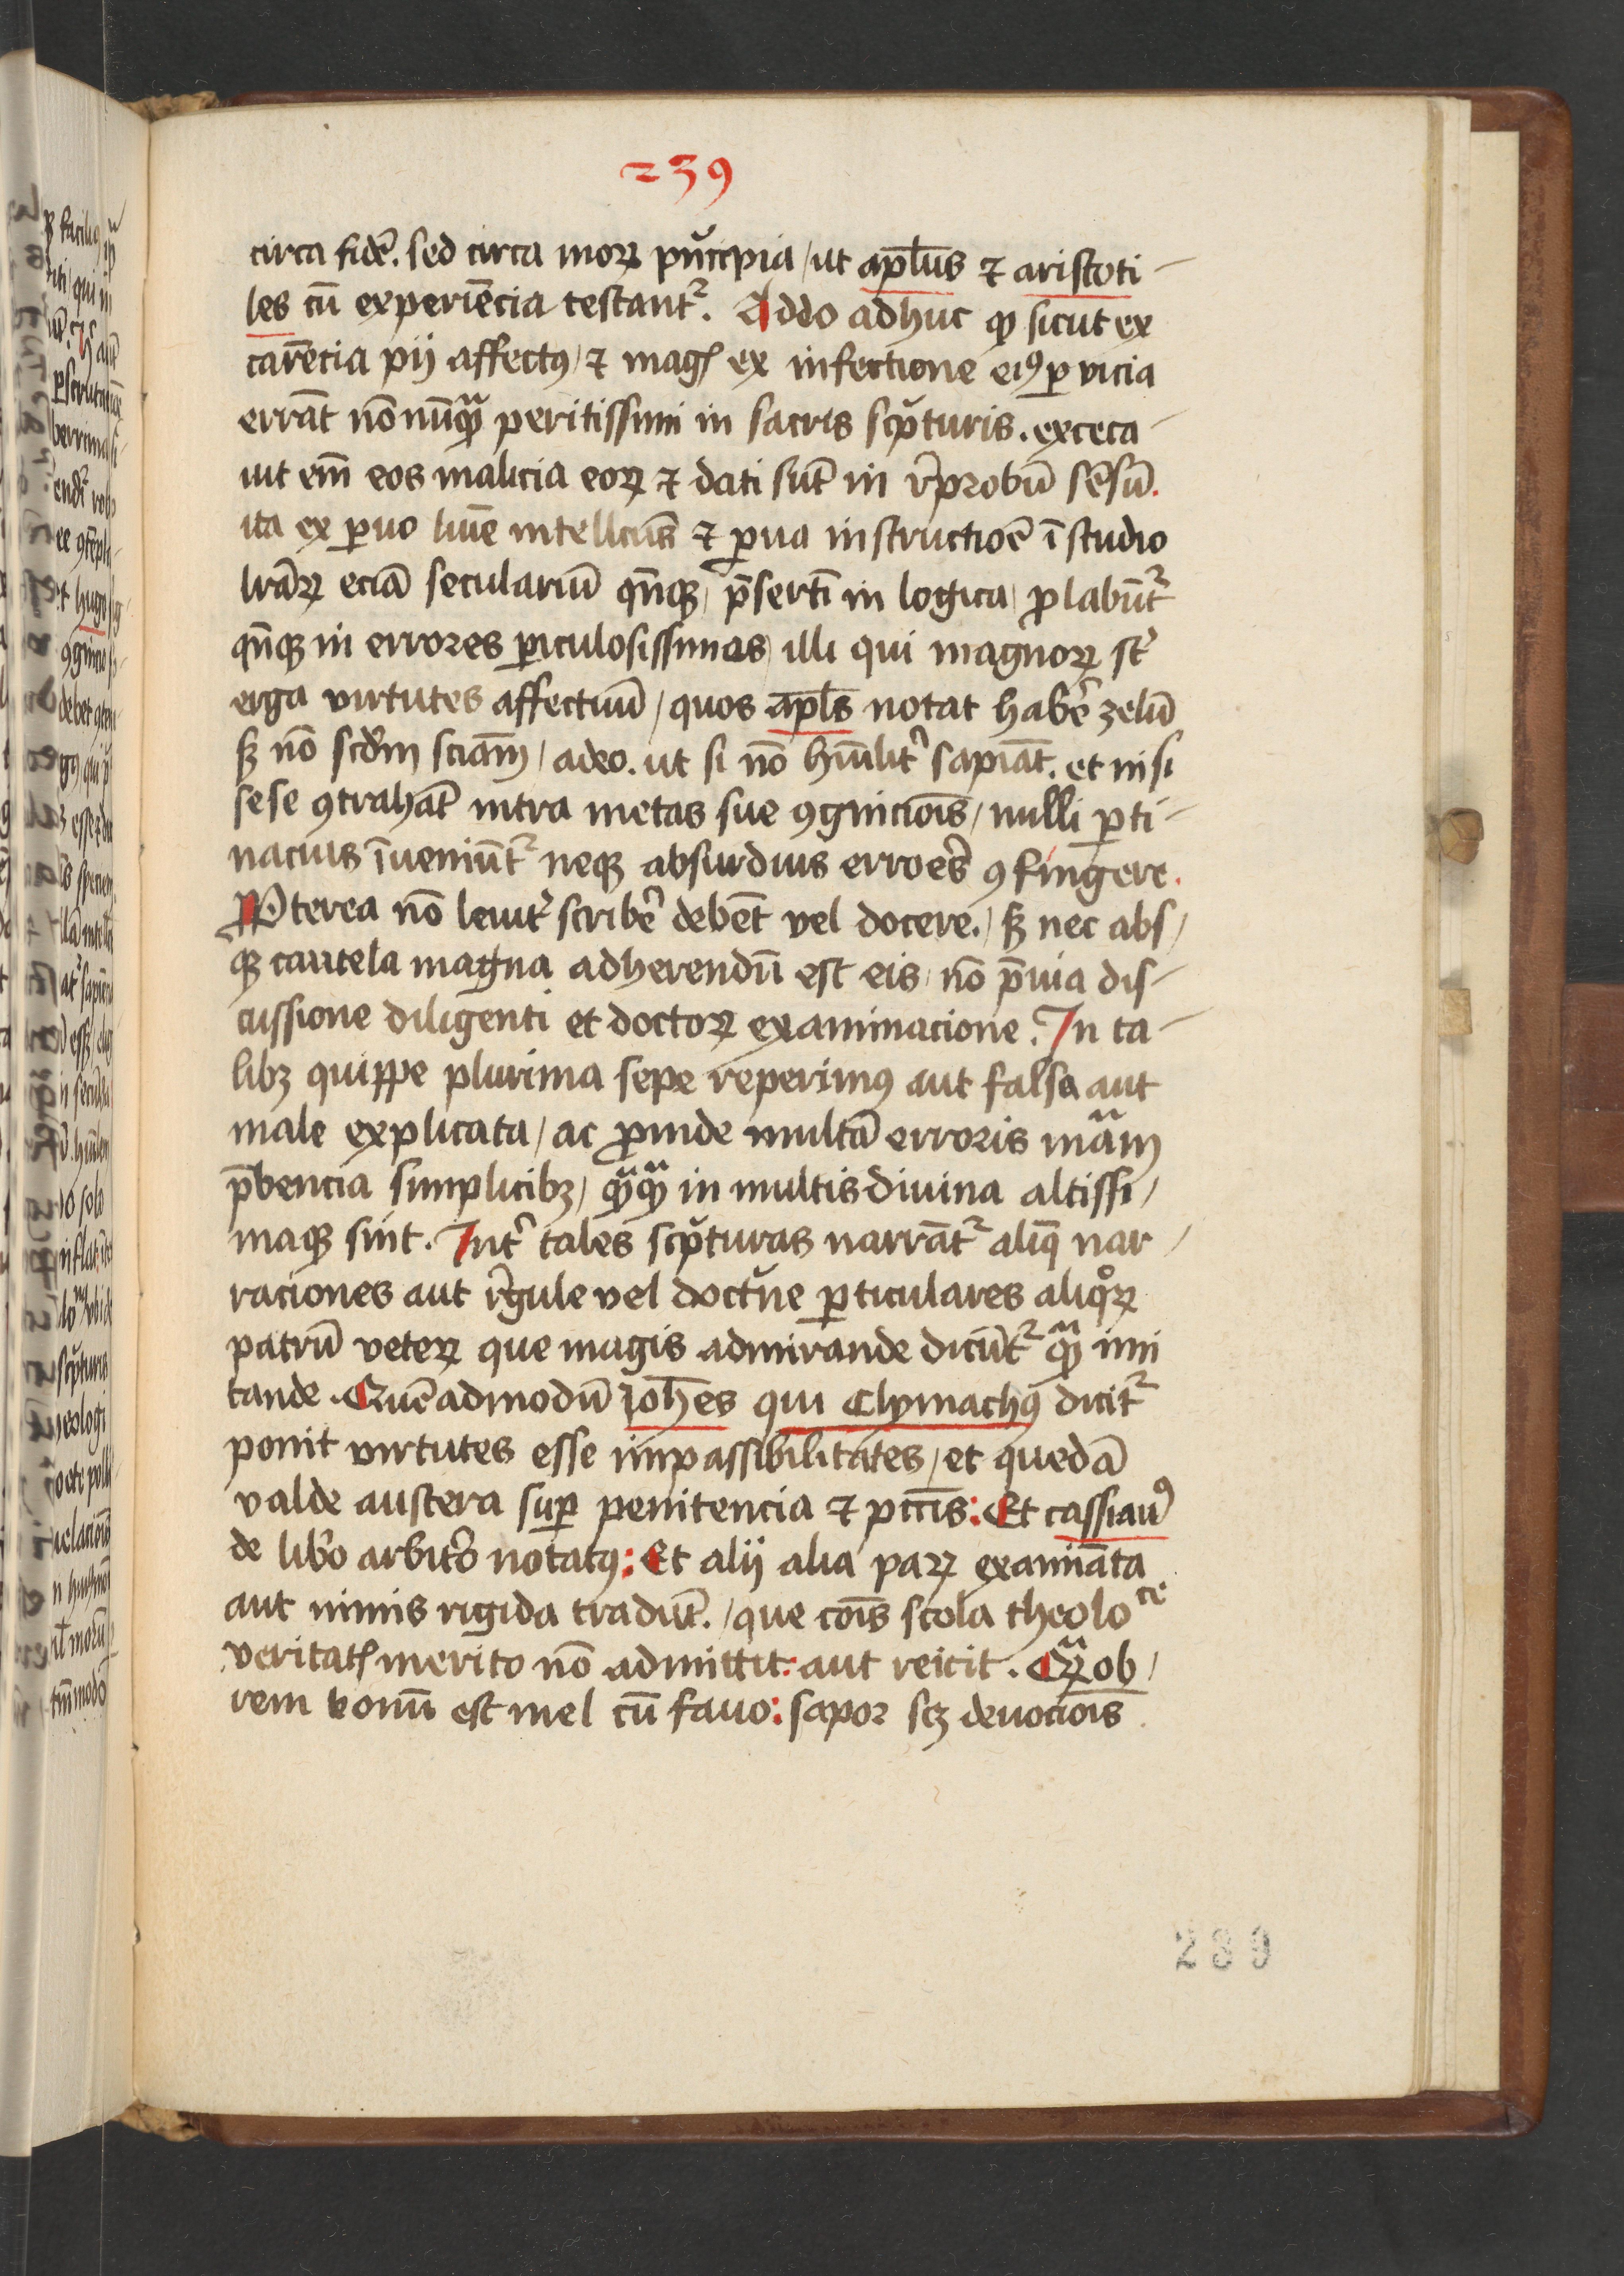 239
circa fidē. sed circa moꝝ pͥncipia / ut apl̄us ⁊ aristoti-
les cū experiēcia testantᷣ. Addo adhuc ꝙ sicut ex
carēcia pij affectꝰ / ⁊ magꝭ ex infectione eiꝰ ꝑ vicia
errāt nōnūqᷓ peritissimi in sacris scͥpturis. exceca-
uit em̄ eos malicia eoꝝ ⁊ dati sūt in rͤprobū sēsū.
ita ex ꝑuo lūīe intellcūs ⁊ ꝑua instructiōe ī studio
lr̄aꝝ eciā seculariū qn̄qꝫ / p̄sertī in logica / ꝓlabūtᷣ
qn̄qꝫ in errores ꝑiculosissimos / illi qui magnoꝝ st̄
erga virtutes affectuū / quos apl̄s notat habe᷑ zelū
sꝫ nō scd̄m sciām / adeo. ut si nō hūilit᷑ sapiāt. et nisi
sese ꝯtrahāt intra metas sue ꝯgnicioīs / nulli ꝑti-
nacius īueniūtᷣ neqꝫ absurdius erroēs ꝯfingere.
Prͦpterea nō leuit᷑ scribe᷑ debēt vel docere. / sꝫ nec abs /
qꝫ cautela magna adherendū est eis / nō p̄uia dis-
cussione diligenti et doctoꝝ examinacione. In ta-
libꝫ quippe plurima sepe reperimꝰ aut falsa aut
male explicata / ac ꝓinde multā erroris māᷓm
p̄bencia simplicibꝫ / qᷓqᷓ in multis diuina altissi /
maqꝫ sint. Int᷑ tales scͥpturas narrātᷣ aliq̄ nar /
raciones aut rͤgule vel doctͥne ꝑticulares aliqͦꝝ
patrū veteꝝ que magis admirande dicūtᷣ qᷓ imi
tande. Quēadmodū ioh̄es qui Clymachꝰ dicitᷣ
ponit virtutes esse impassibilitates / et quedā
valde austera suꝑ penitencia ⁊ pc̄cīs: Et cassianꝰ
de libͦo arbitͦo notatꝰ: Et alij alia paꝝ examīata
aut nimis rigida tradūt. / que cōis scola theoloᶜᵉ
veritatꝭ merito nō admittit: aut reicit. Qᷓꝝ ob /
rem bonū est mel cū fauo: sapor scꝫ deuocioīs
239